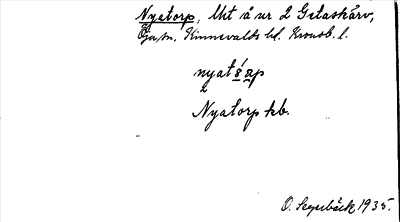 Nyatorp, Uht å nr 2 Getaskärv,
Öja sn, Kinnevalds hd. Kronob. l.
nyatårp
2
Nyatorp kb.
O. Segerbäck 1935.